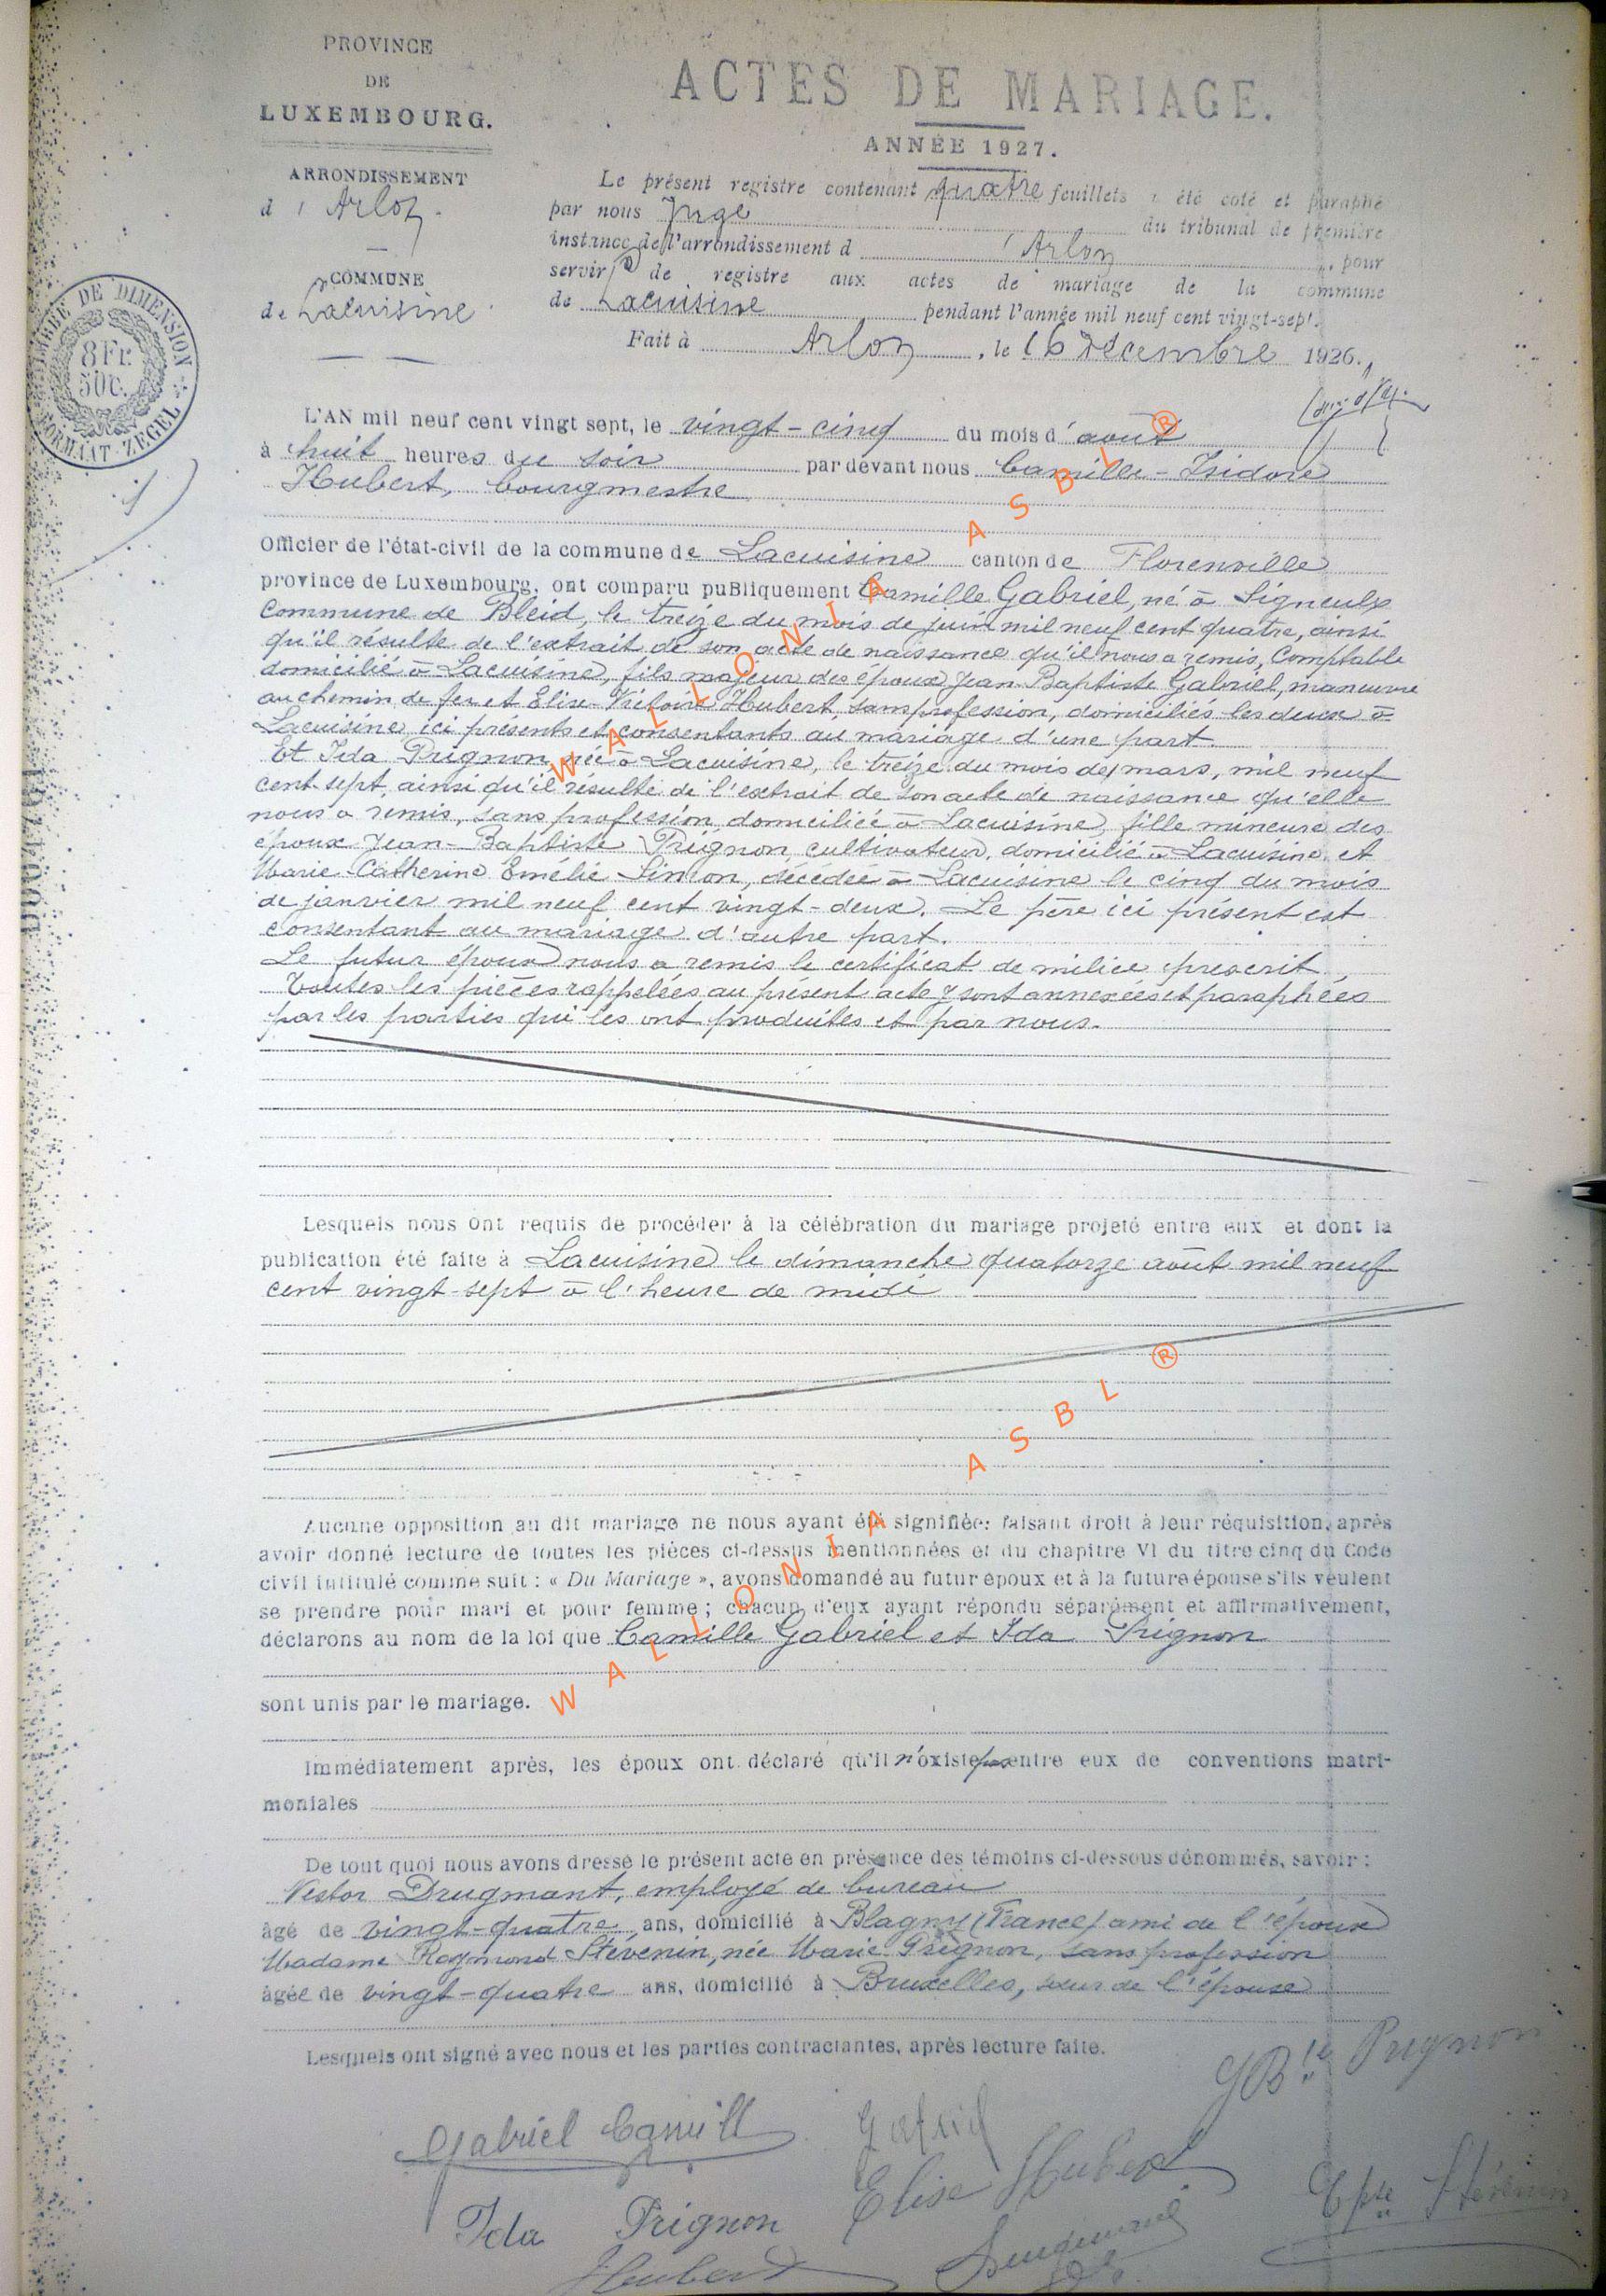 PROVINCE
DE
LUXEMBOURG.
ARRONDISSEMENT
d'Arlon
COMMUNE
de Lacuisine
TIMBRE DE DIMENSION
8Fr.
50c.
FORMAAT-ZEGEL
ACTES DE MARIAGE.
ANNÉE 1927.
Le présent registre contenant quatre feuillets a été coté et paraphé
par nous Juge du tribunal de première
instance de l'arrondissement d'Arlon, pour
servir de registre aux actes de mariage de la commune
de Lacuisine pendant l'année mil neuf cent vingt-sept.
Fait à Arlon, le 16 Décembre 1926.
L'AN mil neuf cent vingt sept, le vingt-cinq du mois d'août
à huit heures du soir par devant nous Camille-Isidore
Hubert, bourgmestre
Officier de l'état-civil de la commune de Lacuisine canton de Florenville
province de Luxembourg, ont comparu puBliquement Camille Gabriel, né à Signeulx
commune de Bleid, le treize du mois de juin mil neuf cent quatre, ainsi
qu'il résulte de l'extrait de son acte de naissance qu'il nous a remis, Comptable
domicilié à Lacuisine, fils majeur des époux Jean-Baptiste Gabriel, manœuvre
au chemin de fer et Elise-Victoire Hubert, sans profession, domiciliés les deux à
Lacuisine, ici présents et consentants au mariage d'une part.
Et Ida Prignon, née à Lacuisine, le treize du mois de mars, mil neuf
cent-sept, ainsi qu'il résulte de l'extrait de son acte de naissance qu'elle
nous a remis, sans profession, domiciliée à Lacuisine, fille mineure des
époux Jean-Baptiste Prignon, cultivateur, domicilié à Lacuisine, et
Marie-Catherine Emélie Simon, décédée à Lacuisine le cinq du mois
de janvier mil neuf cent vingt-deux. Le père ici présent est
consentant au mariage d'autre part.
Le futur époux nous a remis le certificat de milice prescrit,
Toutes les pièces rappelées au présent acte y sont annexées et paraphées
par les parties qui les ont produites et par nous.
Lesquels nous ont requis de procéder à la célébration du mariage projeté entre eux et dont la
publication été faite à Lacuisine le dimanche quatorze août mil neuf
cent vingt-sept à l'heure de midi
Aucune opposition au dit mariage ne nous ayant été signifiée: faisant droit à leur réquisition, après
avoir donné lecture de toutes les pièces ci-dessus mentionnées et du chapitre VI du titre cinq du Code
civil intitulé comme suit : « Du Mariage », avons demandé au futur époux et à la future épouse s'ils veulent
se prendre pour mari et pour femme ; chacun d'eux ayant répondu séparément et affirmativement,
déclarons au nom de la loi que Camille Gabriel et Ida Prignon
sont unis par le mariage.
Immédiatement après, les époux ont déclaré qu'il n'existe pas entre eux de conventions matri-
moniales
De tout quoi nous avons dressé le présent acte en présence des témoins ci-dessous dénommés, savoir :
Nestor Drugmant, employé de bureau
âgé de vingt-quatre ans, domicilié à Blagny (France) ami de l'époux
Madame Raymond Stévenin, née Marie Prignon, sans profession
âgée de vingt-quatre ans, domicilié à Bruxelles, sœur de l'épouse
Lesquels ont signé avec nous et les parties contractantes, après lecture faite.
JBte Prignon
Gabriel Camille
Gabriel
Elise Hubert
Epse Stévenin
Ida Prignon
Hubert
WALLONIA ASBL ®
WALLONIA ASBL ®